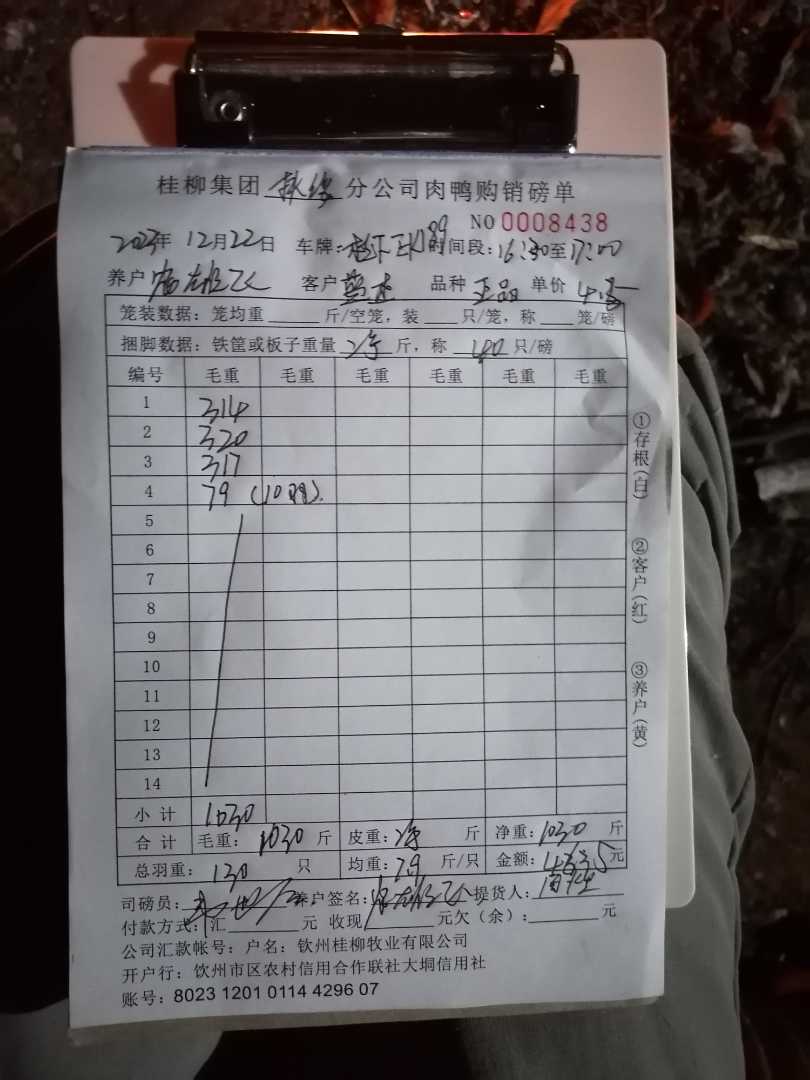 桂柳集团 分公司肉鸭购销磅单
NO 0008438
2023年 12月22日 车牌: 时间段:16:30至17:00
养户 客户 品种 正品 单价
笼装数据：笼均重 斤/空笼，装 只/笼，称 笼/磅
捆脚数据：铁筐或板子重量 斤，称 40 只/磅
编号 毛重 毛重 毛重 毛重 毛重 毛重
1 314
2 320
3 317
4 79 (10只).
5
6
7
8
9
10
11
12
13
14
小计 1030
合计 毛重: 1030 斤 皮重: 斤 净重: 1030 斤
总羽重: 130 只 均重: 7.9 斤/只 金额: 4635 元
司磅员: 养户签名: 提货人:
付款方式: 汇 元 收现 元欠（余）: 元
公司汇款帐号：户名：钦州桂柳牧业有限公司
开户行：钦州市区农村信用合作联社大垌信用社
账号：8023 1201 0114 4296 07
①存根(白)
②客户(红)
③养户(黄)